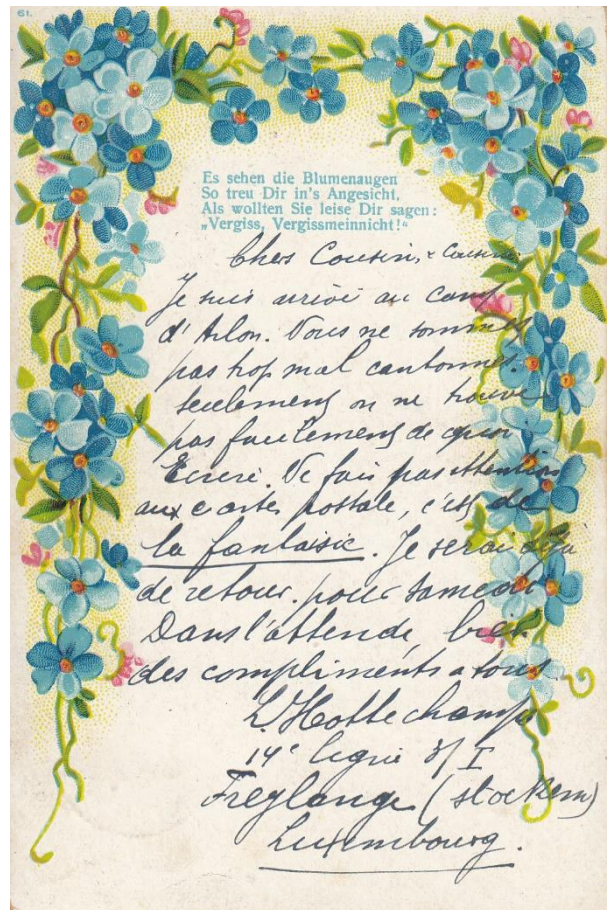 61.
Es sehen die Blumenaugen
So treu Dir in's Angesicht,
Als wollten Sie leise Dir sagen:
„Vergiss, Vergissmeinnicht!“
Cher Cousin, & Cousine
Je suis arrivé au camp
d'Arlon. Nous ne sommes
pas trop mal cantonnés.
seulement on ne trouve
pas facilement de quoi
Ecrire. Ne fais pas attention
aux cartes postale, c'est de
la fantaisie. Je serai déjà
de retour pour samedi
Dans l'attende bien
des compliments a tous
L. Hottechamps
14e ligne I
Freylange (stockem)
Luxembourg.